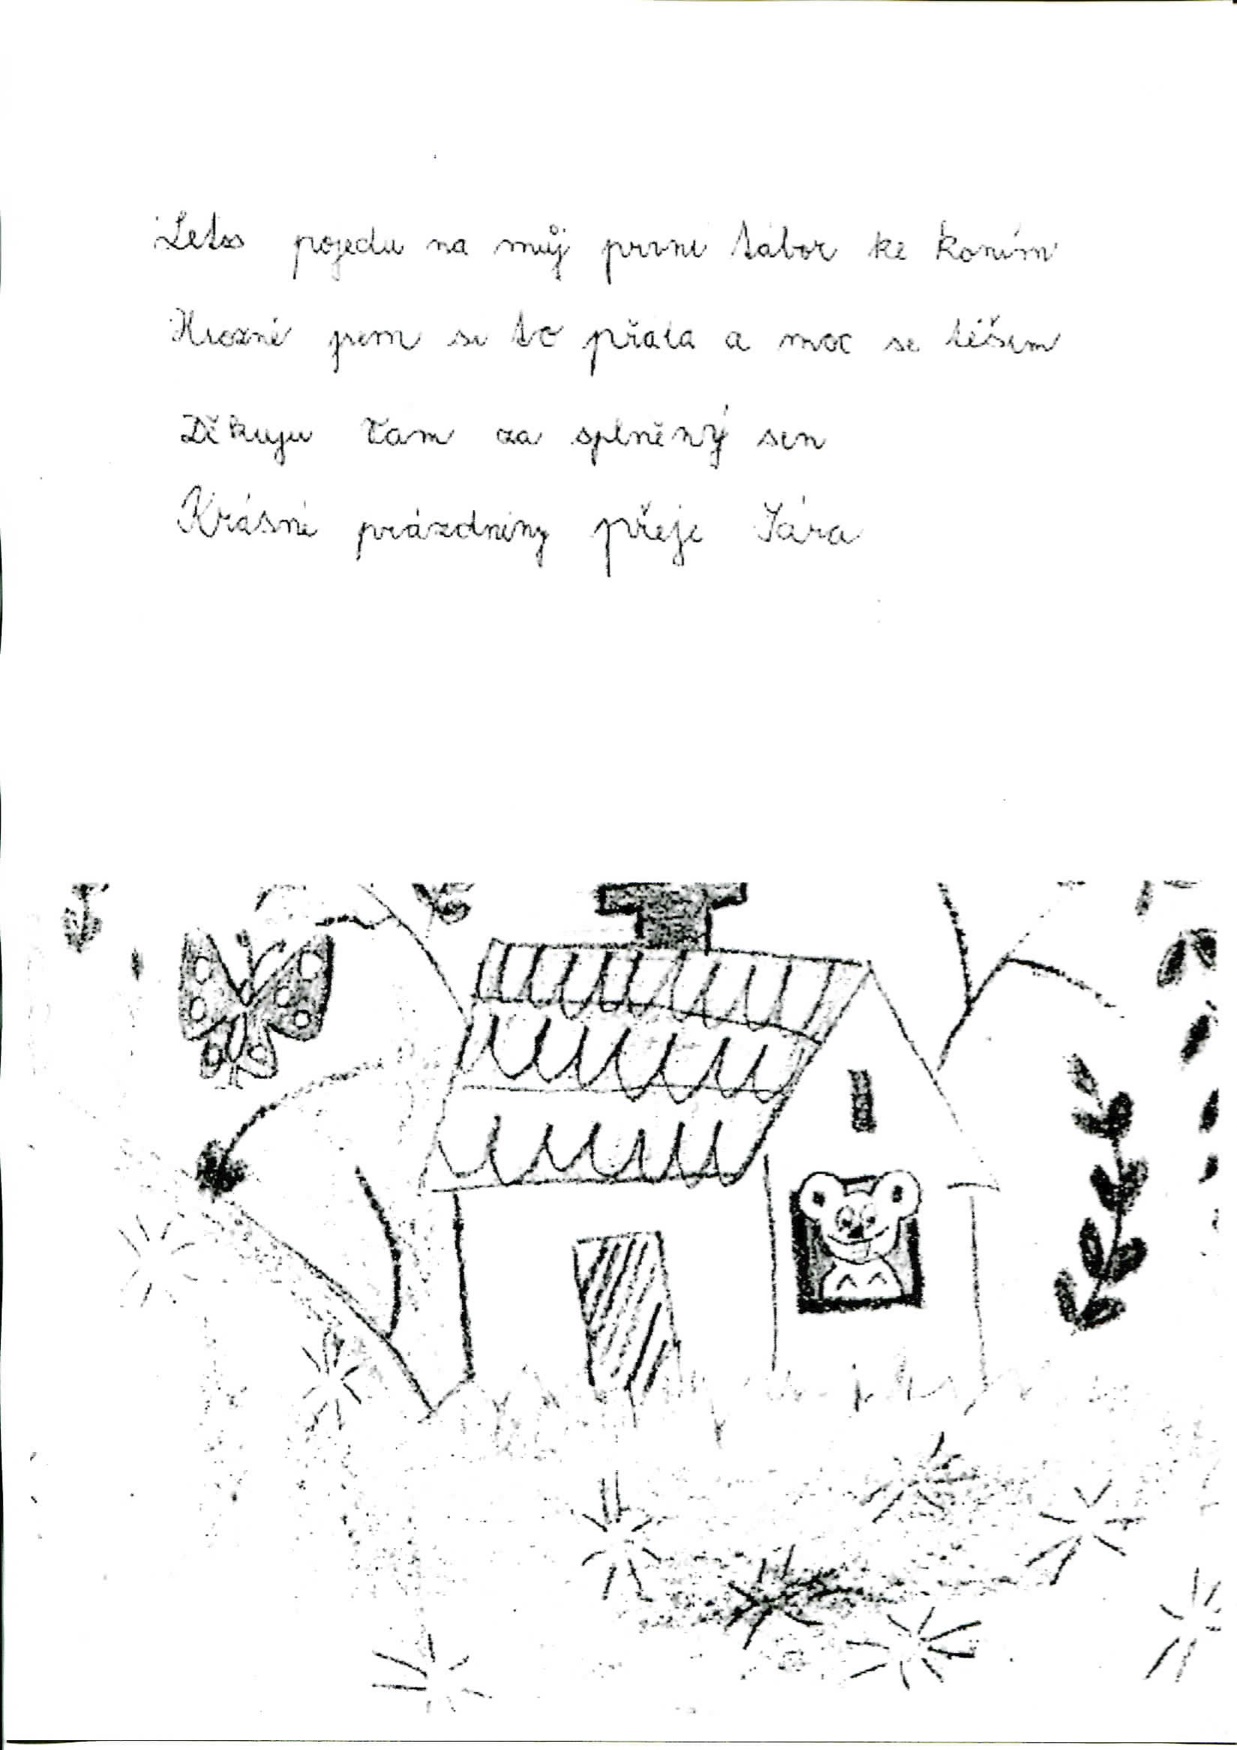 Letos pojedu na můj první tábor ke koním
Hrozně jsem si to přála a moc se těším
Děkuju Vám za splněný sen
Krásné prázdniny přeje Sára